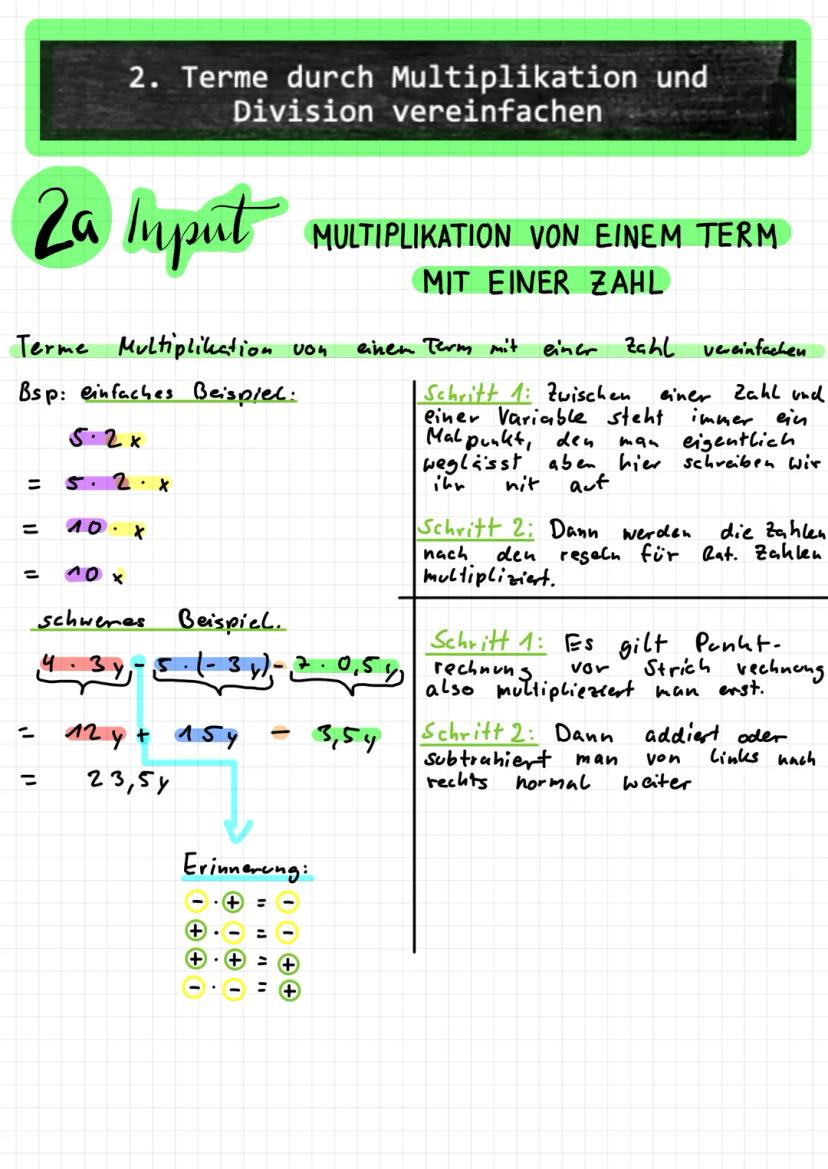 2. Terme durch Multiplikation und
Division vereinfachen
2a Input
MULTIPLIKATION VON EINEM TERM
MIT EINER ZAHL
Terme Multiplikation von einem Term mit einer Zahl vereinfachen
Bsp: einfaches Beispiel:
5 · 2 x
= 5 · 2 · x
= 10 · x
= 10 x
Schritt 1: Zwischen einer Zahl und
einer Variable steht immer ein
Malpunkt, den man eigentlich
weglässt aber hier schreiben wir
ihn mit auf
Schritt 2: Dann werden die Zahlen
nach den regeln für Rat. Zahlen
multipliziert.
schweres Beispiel.
4 · 3y - 5 · (- 3y) - 7 · 0,5y
= 12y + 15y - 3,5y
= 23,5y
Schritt 1: Es gilt Punkt-
rechnung vor Strichrechnung
also multiplieziert man erst.
Schritt 2: Dann addiert oder
subtrahiert man von links nach
rechts normal weiter
Erinnerung:
- · + = -
+ · - = -
+ · + = +
- · - = +